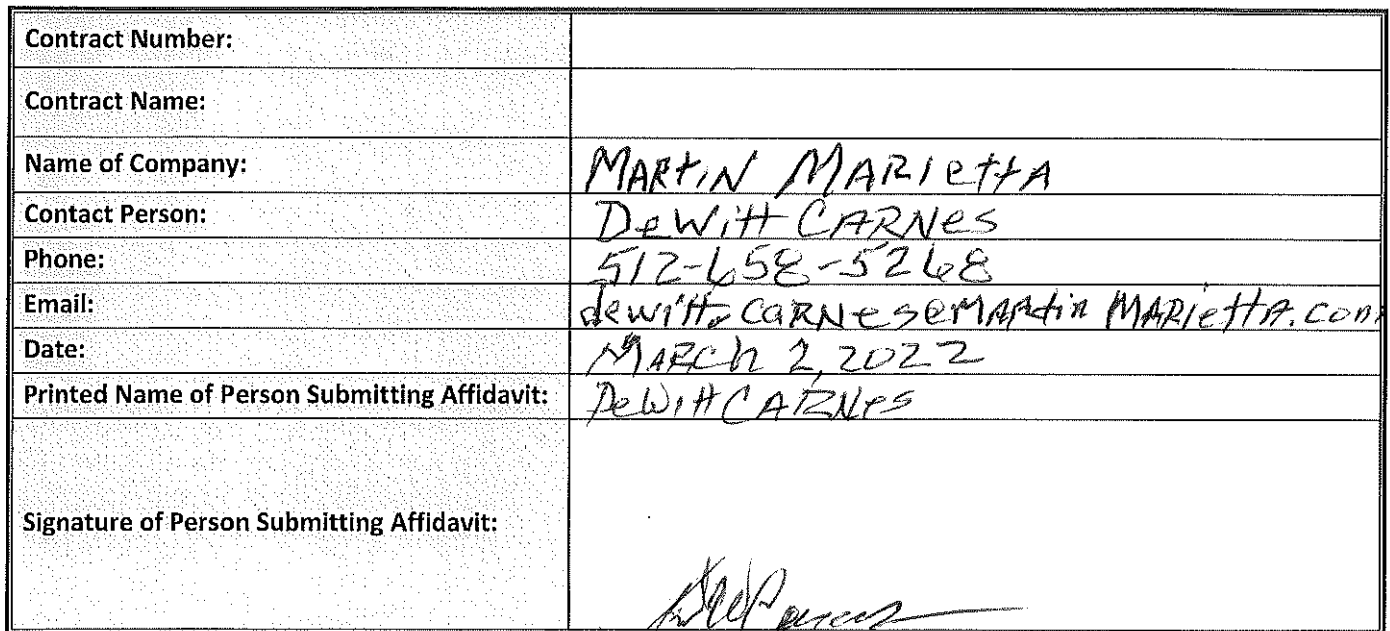 Contract Number:
Contract Name:
Name of Company: MARtiN MARIettA
Contact Person: DeWitt CARNes
Phone: 512-658-5268
Email: dewitt.CARNes@MARtin MARIettA.com
Date: MARCh 2, 2022
Printed Name of Person Submitting Affidavit: DeWitt CARNes
Signature of Person Submitting Affidavit: